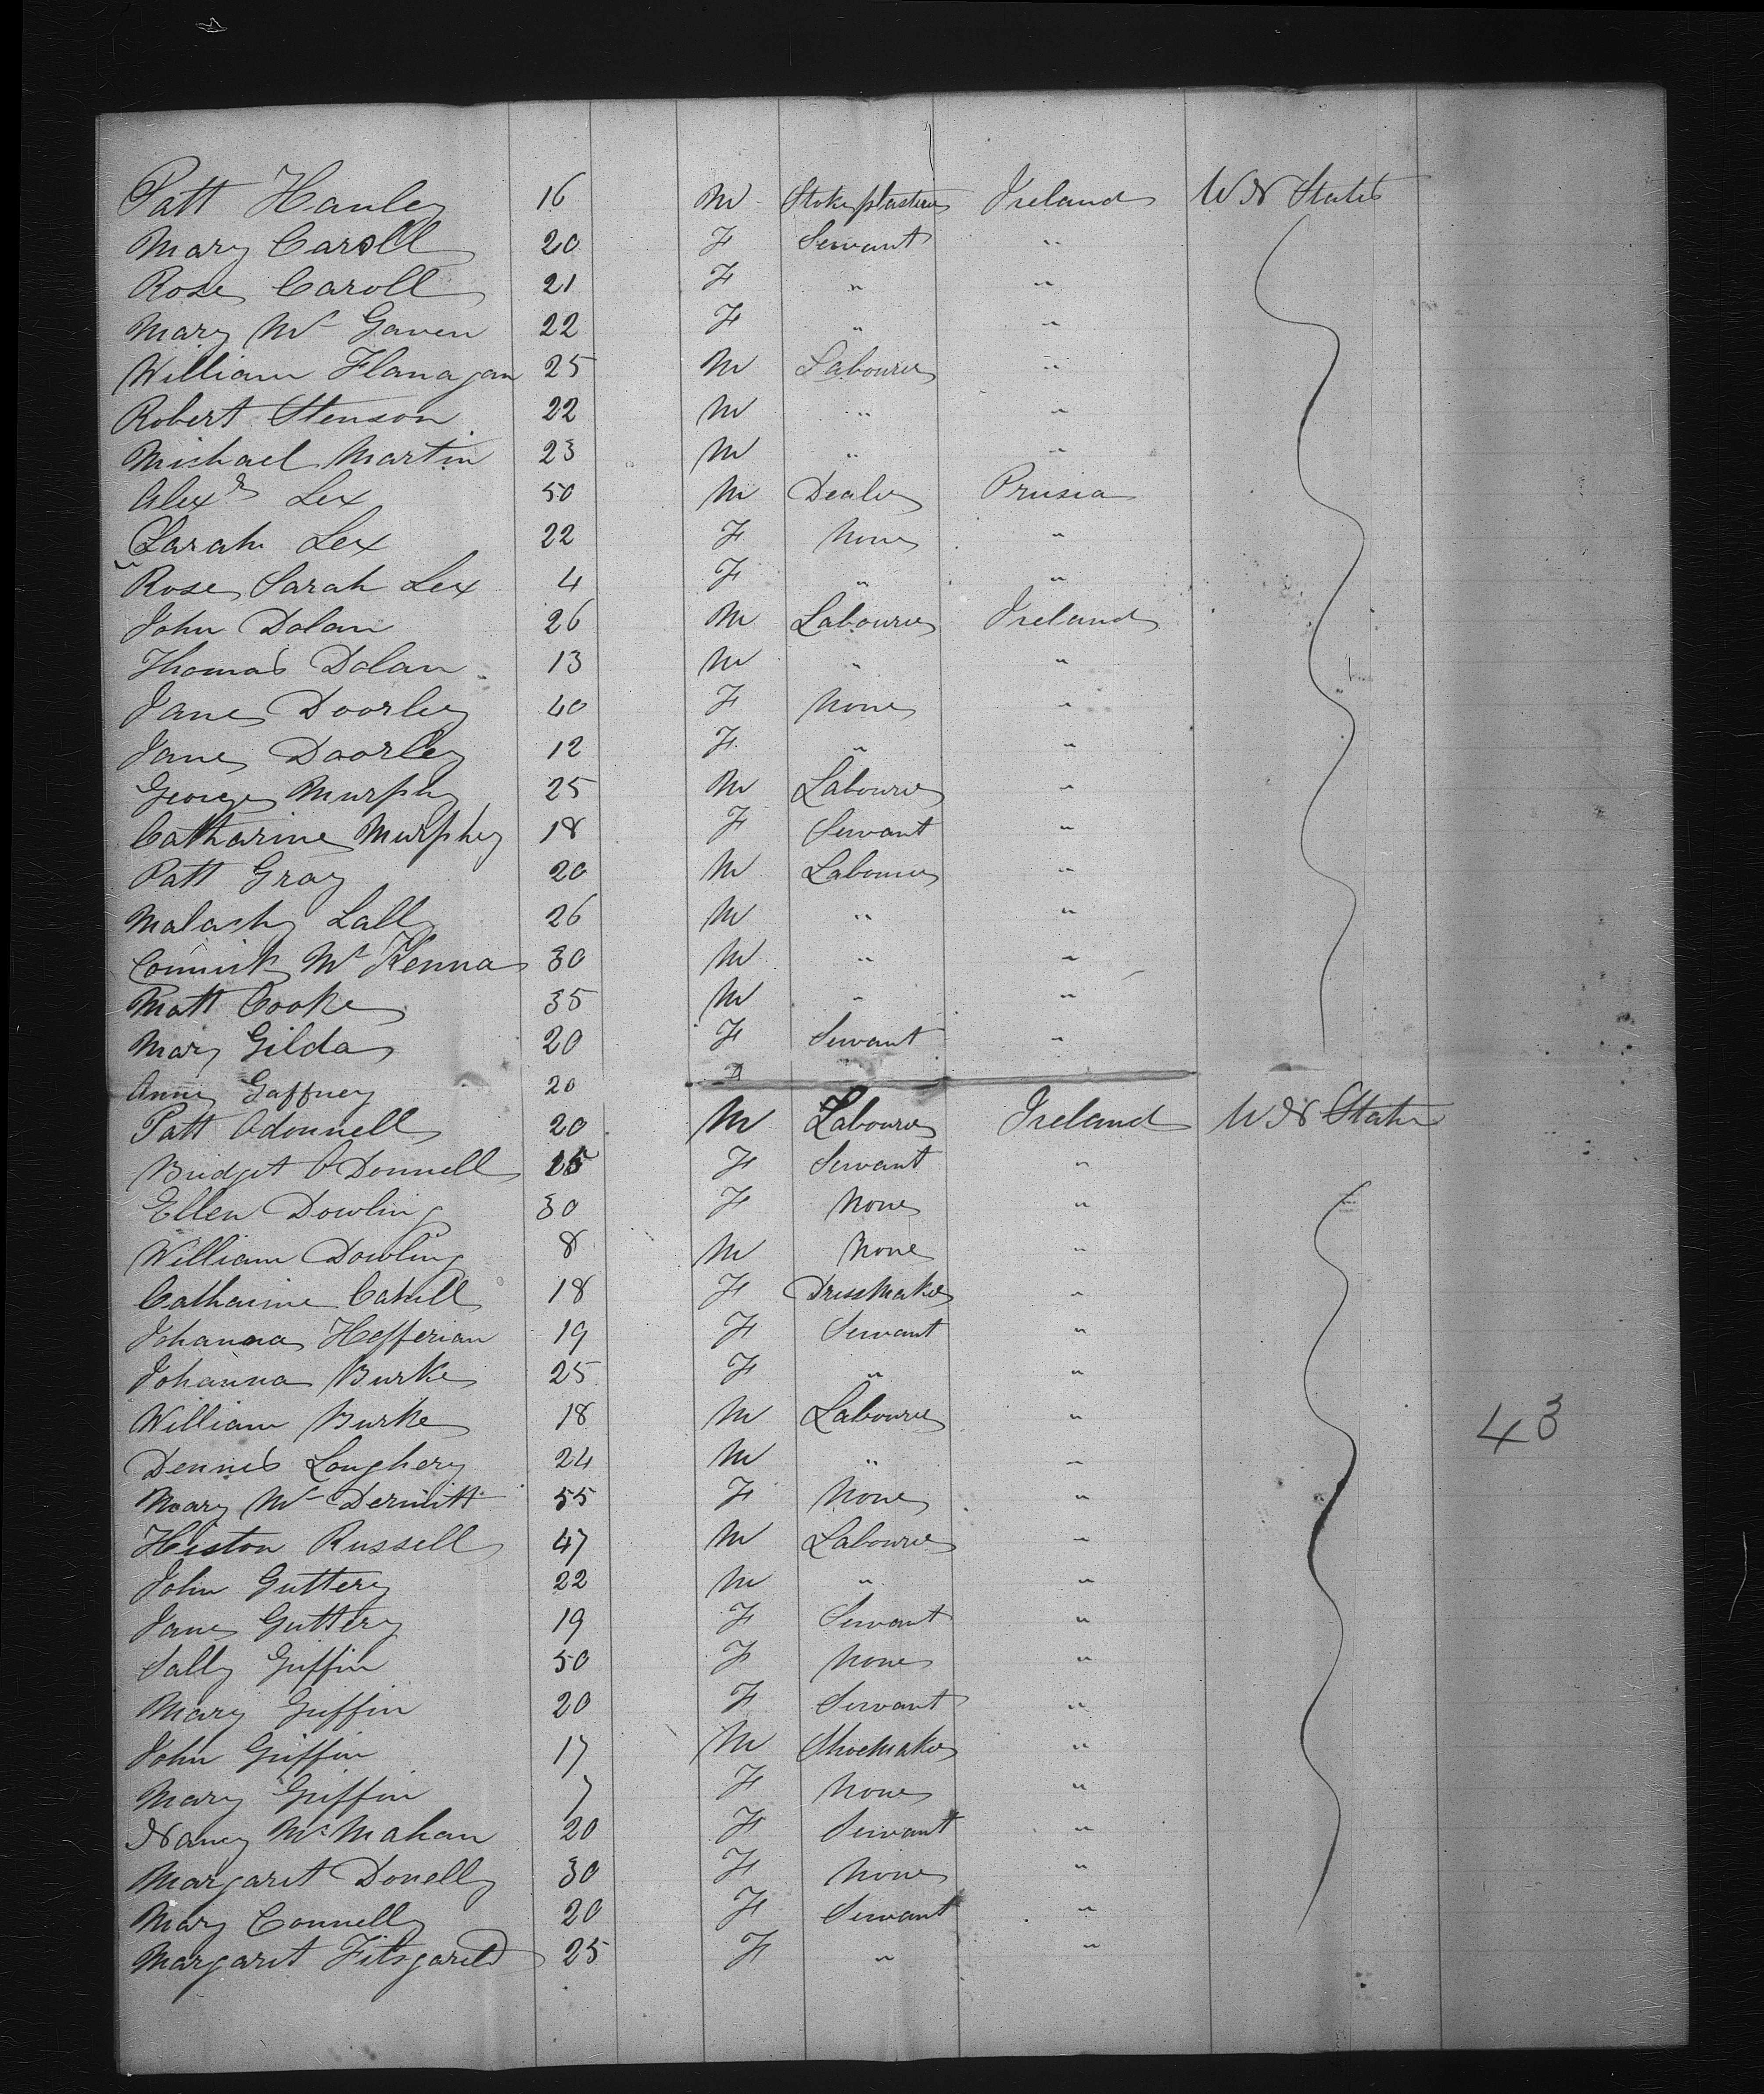 Patt Hanley 16 M Stokeplasterer Ireland U N States
Mary Caroll 20 F Servant "
Rose Caroll 21 F " "
Mary Mc Gaven 22 F " "
William Flanagan 25 M Labourer "
Robert Stenson 22 M " "
Michael Martin 23 M " "
Alexr Lex 50 M Dealer Prusia
Sarah Lex 22 F None "
Rose Sarah Lex 4 F " "
John Dolan 26 M Labourer Ireland
Thomas Dolan 13 M " "
Jane Doorley 40 F None "
Jane Doorley 12 F " "
George Murphy 25 M Labourer "
Catharine Murphey 18 F Servant "
Patt Gray 20 M Labourer "
Malachy Lally 26 M " "
Mc Kenna 30 M " "
Matt Cooke 35 M " "
Mary Gilda 20 F Servant "
Anny Gaffney 20
Patt Odonnell 20 M Labourer Ireland U N States
Bridget ODonnell 25 F Servant "
Ellen Dowling 30 F None "
William Dowling 8 M None "
Catharine Cahill 18 F DressMaker "
Johanna Hefferian 19 F Servant "
Johanna Burke 25 F " "
William Burke 18 M Labourer "
Dennis Loughery 24 M " "
Mary Mc Dermitt 55 F None "
Heiston Russell 47 M Labourer "
John Guttery 22 M " "
Jane Guttery 19 F Servant "
Sally Griffin 50 F None "
Mary Griffin 20 F Servant "
John Griffin 17 M ShoeMaker "
Mary Griffin 7 F None "
Nancy Mc Mahan 20 F Servant "
Margaret Donelly 30 F None "
Mary Connelly 20 F Servant "
Margaret Fitsgareld 25 F " "
43